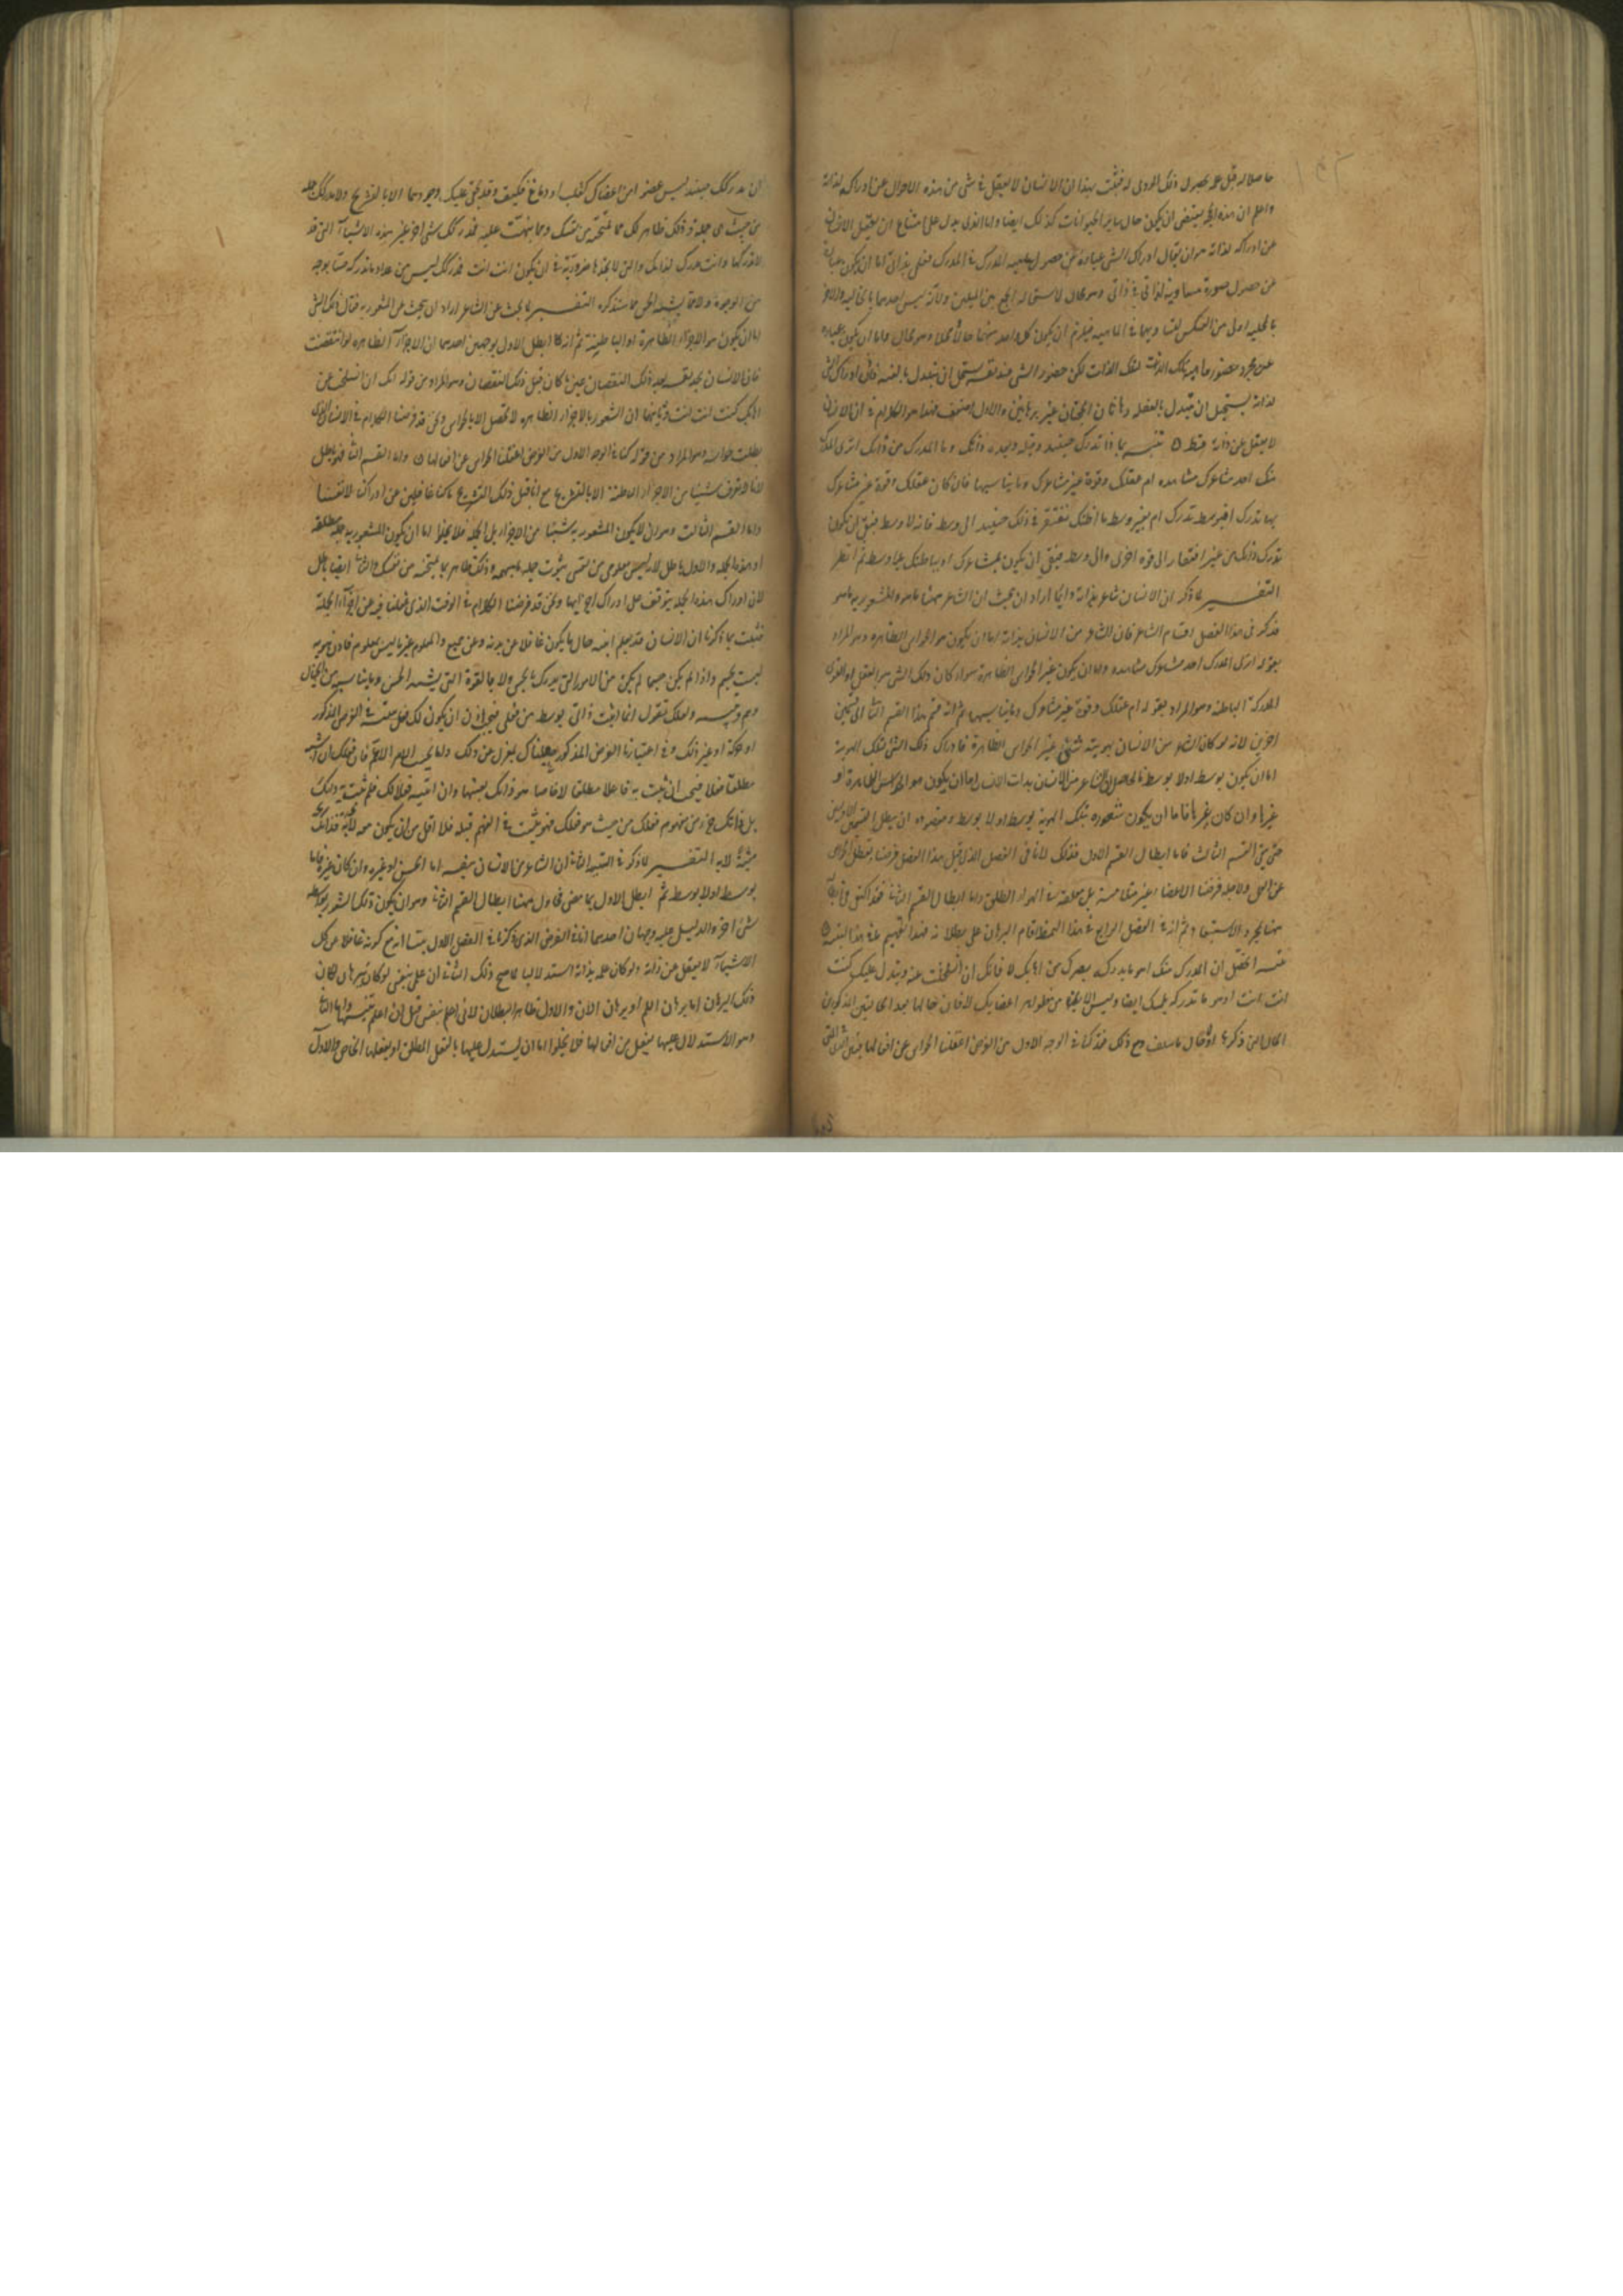 حاصلا له قبل علمه بحصول ذلك المروى له فثبت بهذا ان الانسان لا يغفل فى شى من هذه الاحوال عن ادراكه لذاته
واعلم ان هذه الحجة يقتضى ان يكون حال سائر الحيوانات كذلك ايضا واما الذى يدل على امتناع ان يغفل الانسان
عن ادراكه لذاته هو ان يقال ادراك الشى عبارة عن حصول المدرك فى المدرك فعلمى بذاتى اما ان يكون عبارة
عن حصول صورة مساوية لذاتى فى ذاتى وهو محال لاستحالة الجمع بين المثلين ولانه ليس احدهما بالحالية والاخر
بالمحلية اولى من العكس لتساويهما فى الماهية فيلزم ان يكون كل واحد منهما حالا ومحلا وهو محال واما ان يكون عبارة
عن مجرد حضور ماهية تلك الذات لتلك الذات لكن حضور الشى عند نفسه يستحيل ان يتبدل بالغيبة فاذن ادراك الشى
لذاته يستحيل ان يتبدل بالغفلة وهاتان الحجتان غير برهانيتين والاول اضعف فهذا هو الكلام فى ان الانسان
لا يغفل عن ذاته قط ٥ تنبيه بماذا تدرك حينئذ وقبله وبعده ذاتك وما المدرك من ذاتك اترى المدرك
منك احد مشاعرك مشاهدة ام عقلك وقوة غير مشاعرك وما يناسبها فان كان عقلك وقوة غير مشاعرك
بها تدرك افبوسط تدرك ام بغير وسط ما اظنك تفتقر فى ذلك حينئذ الى وسط فانه لا وسط فبقى ان يكون
تدرك ذاتك من غير افتقار الى قوة اخرى والى وسط فبقى ان يكون بمشاعرك او بباطنك بلا وسط ثم انظر
التفسير لما ذكر ان الانسان شاعر بذاته دائما اراد ان يبحث ان الشاعر ههنا ما هو والمشعور به ما هو
فذكر فى هذا الفصل اقسام الشاعر فان الشاعر من الانسان بذاته اما ان يكون هو الحواس الظاهرة وهو المراد
بقوله اترى المدرك احد مشاعرك مشاهدة واما ان يكون غير الحواس الظاهرة سواء كان ذلك الشى هو العقل او القوى
المدركة الباطنة وهو المراد بقوله ام عقلك وقوة غير مشاعرك وما يناسبها ثم انه قسم هذا القسم الثانى الى قسمين
اخرين لانه لو كان الشاعر من الانسان بهويته شى غير الحواس الظاهرة فادراك ذلك الشى لتلك الهوية
اما ان يكون بوسط او لا بوسط فالحاصل ان الشاعر من الانسان بذات الانسان اما ان يكون هو الحواس الظاهرة او
غيرها وان كان غيرها فاما ان يكون شعوره بتلك الهوية بوسط او لا بوسط ومقصوده ان يبطل القسمين الاولين
حتى يبقى القسم الثالث فاما ابطال القسم الاول فذلك لانا فى الفصل الذى قبل هذا الفصل فرضنا تعطل الحواس
عن الحس ولاجله فرضنا الاعضاء غير متلامسة بل معلقة فى الهواء الطلق واما ابطال القسم الثانى فقد اكتفى فى ابطاله
ههنا بمجرد الاستبعاد ثم انه فى الفصل الرابع فى هذا النمط اقام البرهان على بطلانه فهذا تفهيم ما فى هذا التنبيه ٥
تنبيه اتحصل ان المدرك منك اهو ما يدركه بصرك من اهابك لا فانك ان انسلخت عنه وتبدل عليك كنت
انت انت اوهو ما تدركه بلمسك ايضا وليس الا من ظواهر اعضائك لا فان حالها ما سلف
الحال التى ذكرها ومع ذلك فقد كنا فى الوجه الاول من الفرض اغفلنا الحواس عن افعالها فبين
ان مدركك حينئذ ليس عضوا من اعضائك كقلب او دماغ فكيف وقد يخفى عليك وجودهما الا بالتشريح ولا مدركك جملة
من حيث هى جملة وذلك ظاهر لك مما تمتحنه من نفسك ومما نبهت عليه فمدركك شى اخر غير هذه الاشياء التى قد
لا تدركها وانت مدرك لذاتك والتى لا تجدها ضرورية فى ان يكون انت انت فمدركك ليس من عداد ما تدركه حسا بوجه
من الوجوه ولا مما يشبه الحس مما سنذكره التفسير لما بحث عن الشاعر اراد ان يبحث عن المشعور به فقال ذلك الشى
اما ان يكون هو الاجزاء الظاهرة او الباطنة ثم انه كما ابطل الاول بوجهين احدهما ان الاجزاء الظاهرة لو انتقصت
فان الانسان يجد نفسه بعد ذلك النقصان عين ما كان قبل ذلك النقصان وهو المراد من قوله انك ان انسلخت عن
اهابك كنت انت انت وثانيهما ان الشعور بالاجزاء الظاهرة لا تحصل الا بالحواس ونحن قد فرضنا الكلام فى الانسان الذى
بطلت حواسه وهو المراد من قوله كنا فى الوجه الاول من الفرض اغفلنا الحواس عن افعالها ٥ واما القسم الثانى فهو باطل
لانا لا نعرف شيئا من الاجزاء الباطنة الا بالتشريح مع انا قبل ذلك التشريح ما كنا غافلين عن ادراكنا لانفسنا
واما القسم الثالث وهو ان لا يكون المشعور به شيئا من الاجزاء بل الجملة فلا يخلو اما ان يكون المشعور به جملة مطلقة
او هذه الجملة والاول باطل لانه ليس معلومى من نفسى ثبوت جملة مبهمة وذلك ظاهر مما يمتحنه من نفسك والثانى ايضا باطل
لان ادراك هذه الجملة يتوقف على ادراك اجزائها ونحن قد فرضنا الكلام فى الوقت الذى غفلنا فيه عن اجزاء الجملة
فثبت بما ذكرنا ان الانسان قد يعلم نفسه حال ما يكون غافلا عن بدنه وعن جميع والمعلوم غير ما ليس بمعلوم فاذن هويته
ليست بجسم واذا لم يكن جسما لم يكن من الامور التى يدرك بالحس ولا بالقوة التى يشبه الحس وما يناسبه من الخيال
وهم وتنبيه ولعلك تقول انما اثبت ذاتى بوسط من فعلى فيجب اذن ان يكون لك فعل تثبته فى الفرض المذكور
او حركة او غير ذلك وفى اعتبارنا الفرض المذكور جعلناك بمعزل من ذلك واما بحسب الامر الاعم فان فعلك ان اثبته
مطلقا فعلا فيجب ان تثبت به فاعلا مطلقا لا خاصا هو ذاتك بعينها وان اثبته فعلا لك فلم تثبت به ذاتك
بل ذاتك جزء من مفهوم فعلك من حيث هو فعلك فهو مثبت فى الفهم قبله فلا اقل من ان يكون معه لا به فذاتك
مثبتة لا به التفسير لما ذكر فى التنبيه الثانى ان الشاعر من الانسان بنفسه اما الحس او غيره وان كان غيره فاما
بوسط او لا بوسط ثم ابطل الاول بما مضى فحاول ههنا ابطال القسم الثانى وهو ان يكون ذلك الشعور بواسطة
شى اخر والدليل عليه وجهان احدهما ان فى الفرض الذى ذكرناه فى الفصل الاول بينا انه مع كونه غافلا عن كل
الاشياء لا يغفل عن ذاته ولو كان علمه بذاته استدلاليا لما صح ذلك الثانى ان علمى بنفسى لو كان ببرهان لكان
ذلك البرهان اما برهان اللم او برهان الان والاول ظاهر البطلان لانى اعلم نفسى قبل ان اعلم واما الثانى
وهو الاستدلال عليها بفعل من افعالها فلا يخلو اما ان يستدل عليها بالفعل المطلق او بفعلها الخاص والاول